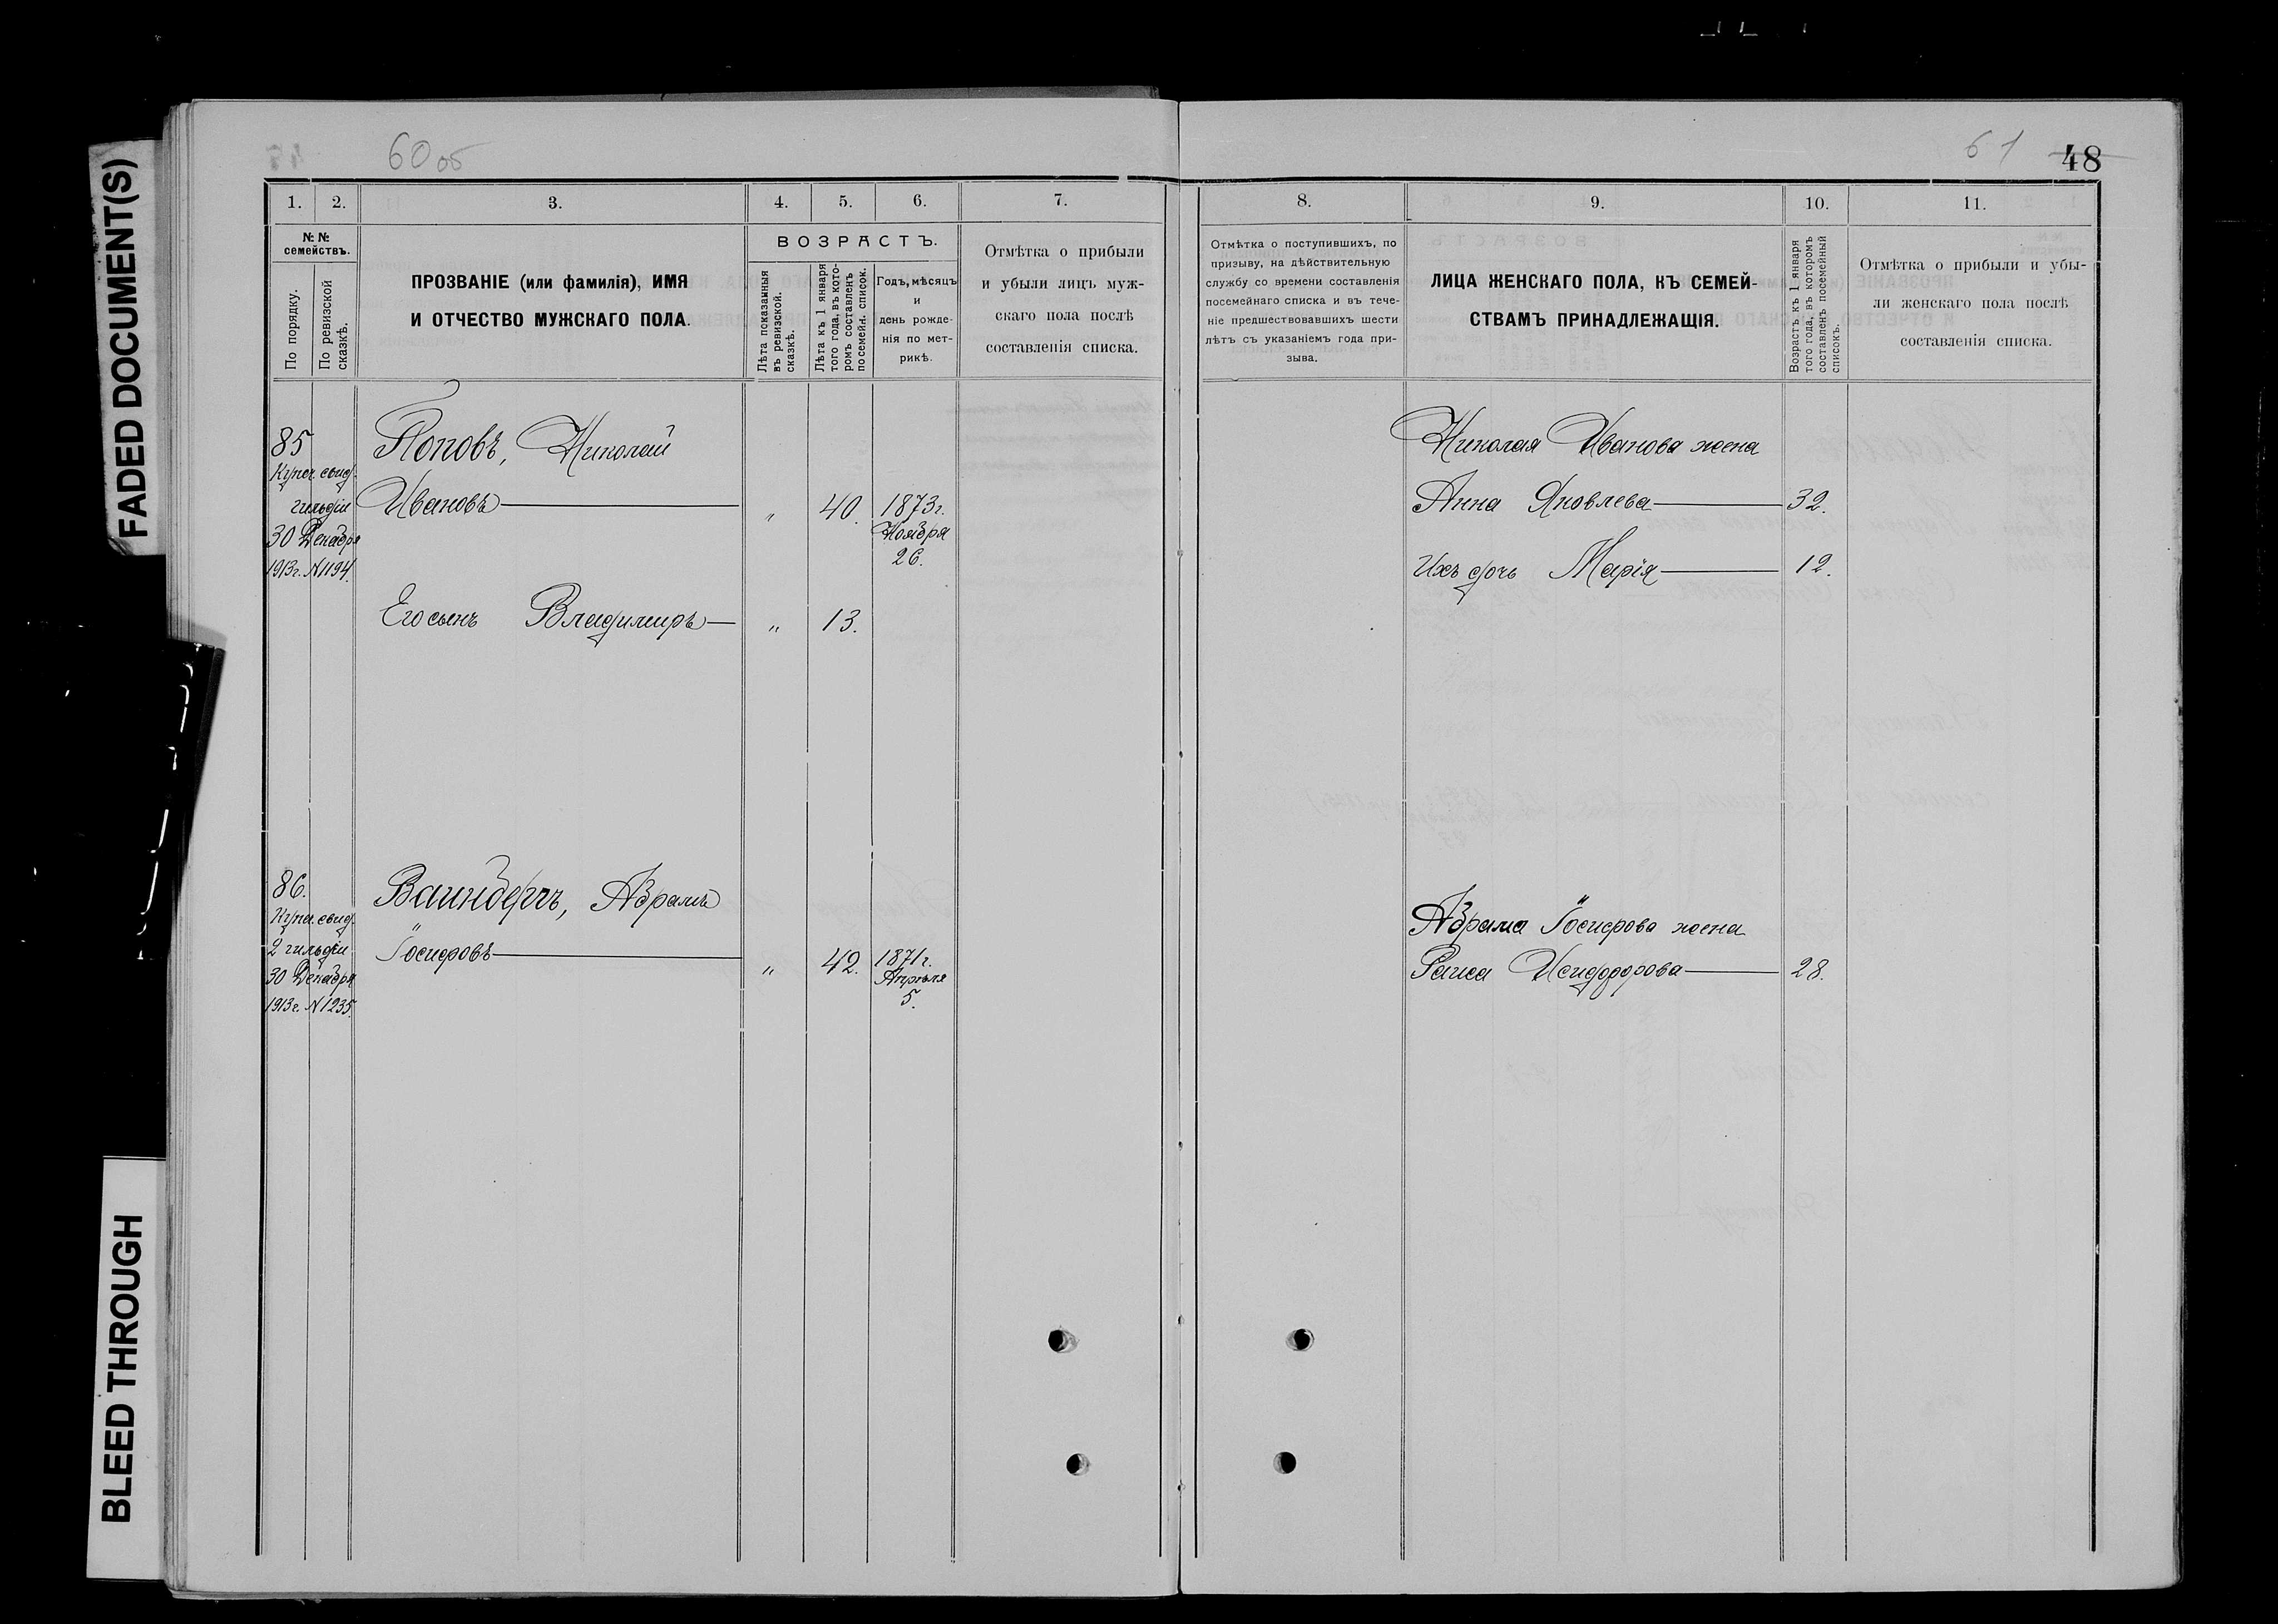 FADED DOCUMENT(S)
BLEED THROUGH
60 об
1. 2. 3. 4. 5. 6. 7.
№ №
семействъ.
По порядку.
По ревизской
сказкѣ.
ПРОЗВАНІЕ (или фамилія), ИМЯ
И ОТЧЕСТВО МУЖСКАГО ПОЛА.
ВОЗРАСТЪ.
Лѣта показанныя
въ ревизской.
сказкѣ.
Лѣта къ 1 января
того года, въ кото-
ромъ составленъ
посемейн. список.
Годъ, мѣсяцъ
и
день рожде-
нія по мет-
рикѣ.
Отмѣтка о прибыли
и убыли лицъ муж-
скаго пола послѣ
составленія списка.
85
Купеч. свид.
гильдіи
30 Декабря
1913г. №1194.
Поповъ, Николай
Ивановъ „ 40. 1873г.
Ноября
26.
Его сынъ Владимиръ „ 13.
86.
Купеч. свид.
2 гильдіи
30 Декабря
1913г. №1235.
Ваинбергъ, Абрамъ
Іосифовъ „ 42. 1871г.
Апрѣля
5.
61 48
8. 9. 10. 11.
Отмѣтка о поступившихъ, по
призыву, на дѣйствительную
службу со времени составленія
посемейнаго списка и въ тече-
ніе предшествовавшихъ шести
лѣтъ съ указаніемъ года при-
зыва.
ЛИЦА ЖЕНСКАГО ПОЛА, КЪ СЕМЕЙ-
СТВАМЪ ПРИНАДЛЕЖАЩІЯ.
Возрастъ къ 1 января
того года, въ которомъ
составленъ посемейный
списокъ.
Отмѣтка о прибыли и убы-
ли женскаго пола послѣ
составленія списка.
Николая Иванова жена
Анна Яковлева 32.
Ихъ дочь Марія 12.
Абрама Іосифова жена
Раиса Исидорова 28.